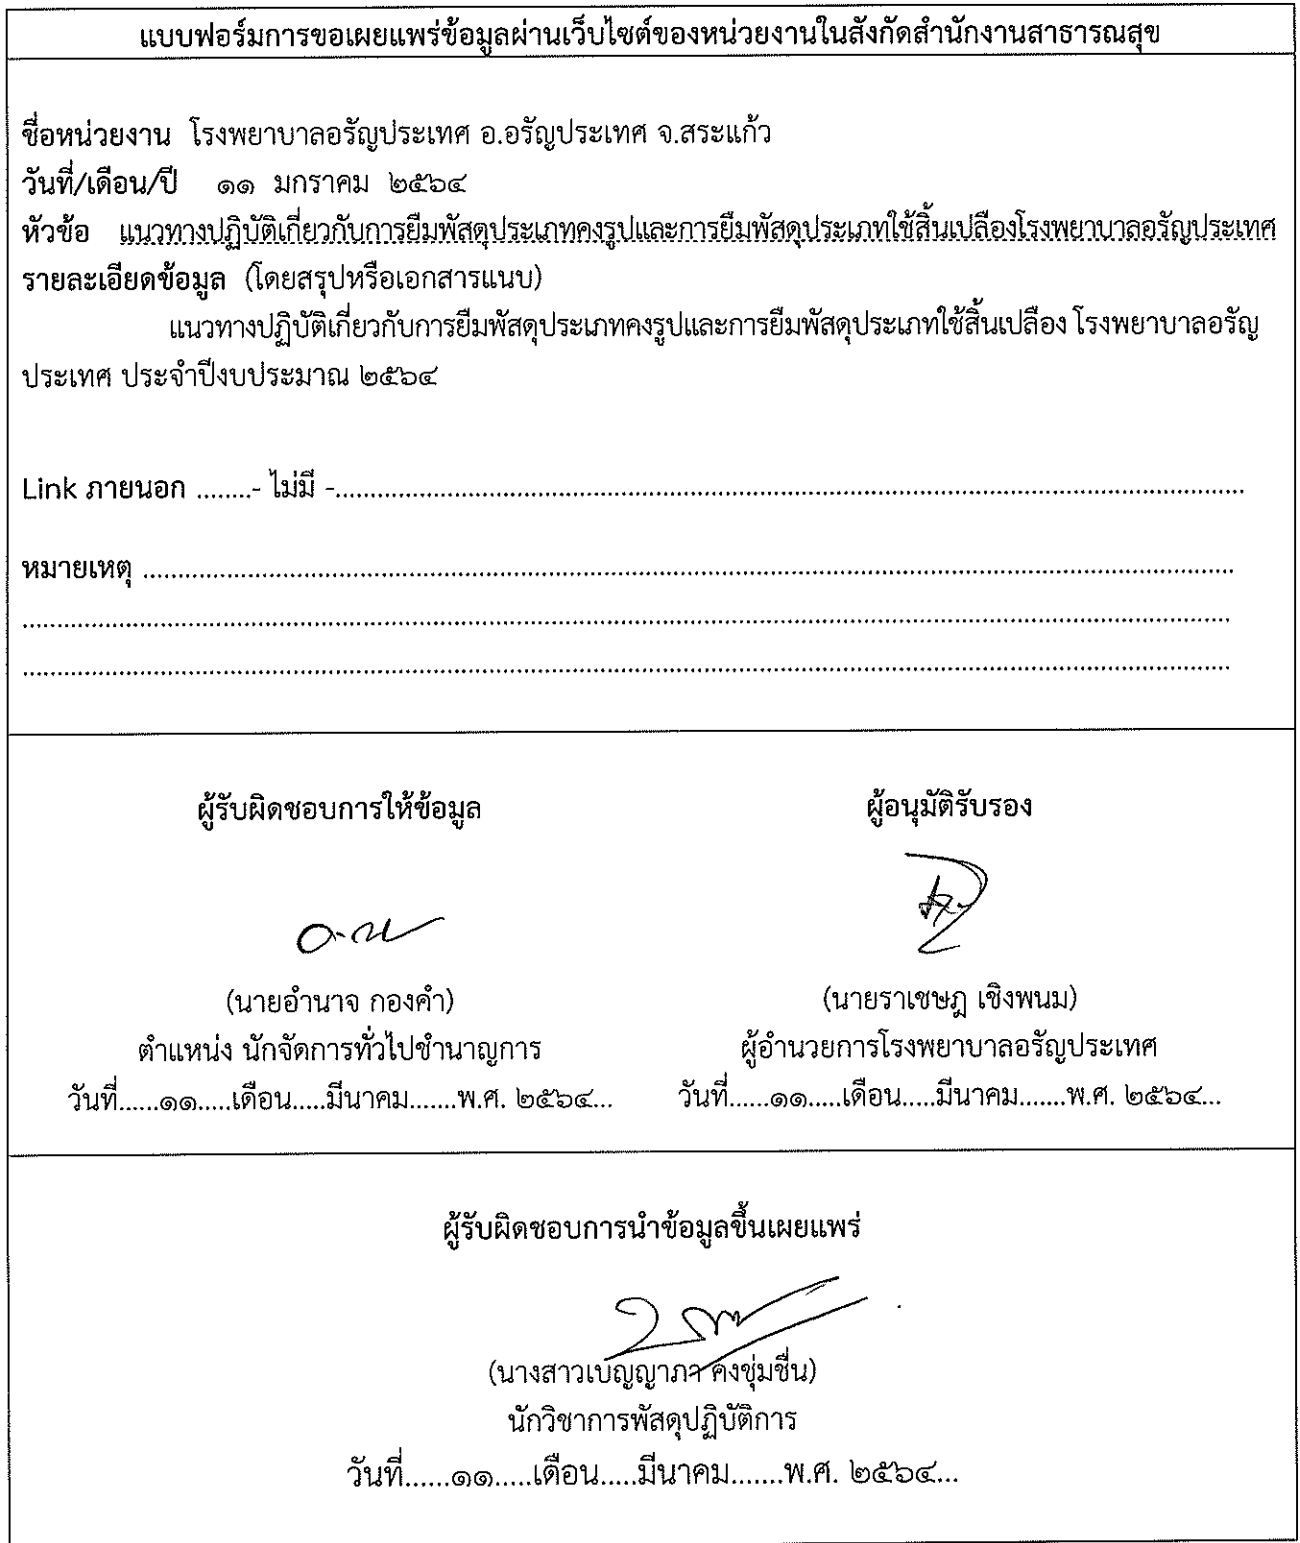 แบบฟอร์มการขอเผยแพร่ข้อมูลผ่านเว็บไซต์ของหน่วยงานในสังกัดสำนักงานสาธารณสุข
ชื่อหน่วยงาน โรงพยาบาลอรัญประเทศ อ.อรัญประเทศ จ.สระแก้ว
วันที่/เดือน/ปี ๑๑ มกราคม ๒๕๖๔
หัวข้อ แนวทางปฏิบัติเกี่ยวกับการยืมพัสดุประเภทคงรูปและการยืมพัสดุประเภทใช้สิ้นเปลืองโรงพยาบาลอรัญประเทศ
รายละเอียดข้อมูล (โดยสรุปหรือเอกสารแนบ)
แนวทางปฏิบัติเกี่ยวกับการยืมพัสดุประเภทคงรูปและการยืมพัสดุประเภทใช้สิ้นเปลือง โรงพยาบาลอรัญ
ประเทศ ประจำปีงบประมาณ ๒๕๖๔
Link ภายนอก ........- ไม่มี -........................................................................
หมายเหตุ ........................................................................
........................................................................
........................................................................
ผู้รับผิดชอบการให้ข้อมูล ผู้อนุมัติรับรอง
(นายอำนาจ กองคำ) (นายราเชษฎ เชิงพนม)
ตำแหน่ง นักจัดการทั่วไปชำนาญการ ผู้อำนวยการโรงพยาบาลอรัญประเทศ
วันที่......๑๑.....เดือน.....มีนาคม.......พ.ศ. ๒๕๖๔... วันที่......๑๑.....เดือน.....มีนาคม.......พ.ศ. ๒๕๖๔...
ผู้รับผิดชอบการนำข้อมูลขึ้นเผยแพร่
(นางสาวเบญญาภา คงชุ่มชื่น)
นักวิชาการพัสดุปฏิบัติการ
วันที่......๑๑.....เดือน.....มีนาคม.......พ.ศ. ๒๕๖๔...